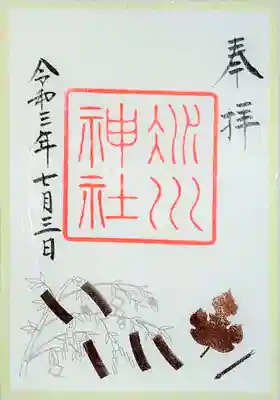 奉拝
氷川
神社
令和三年 七月三日